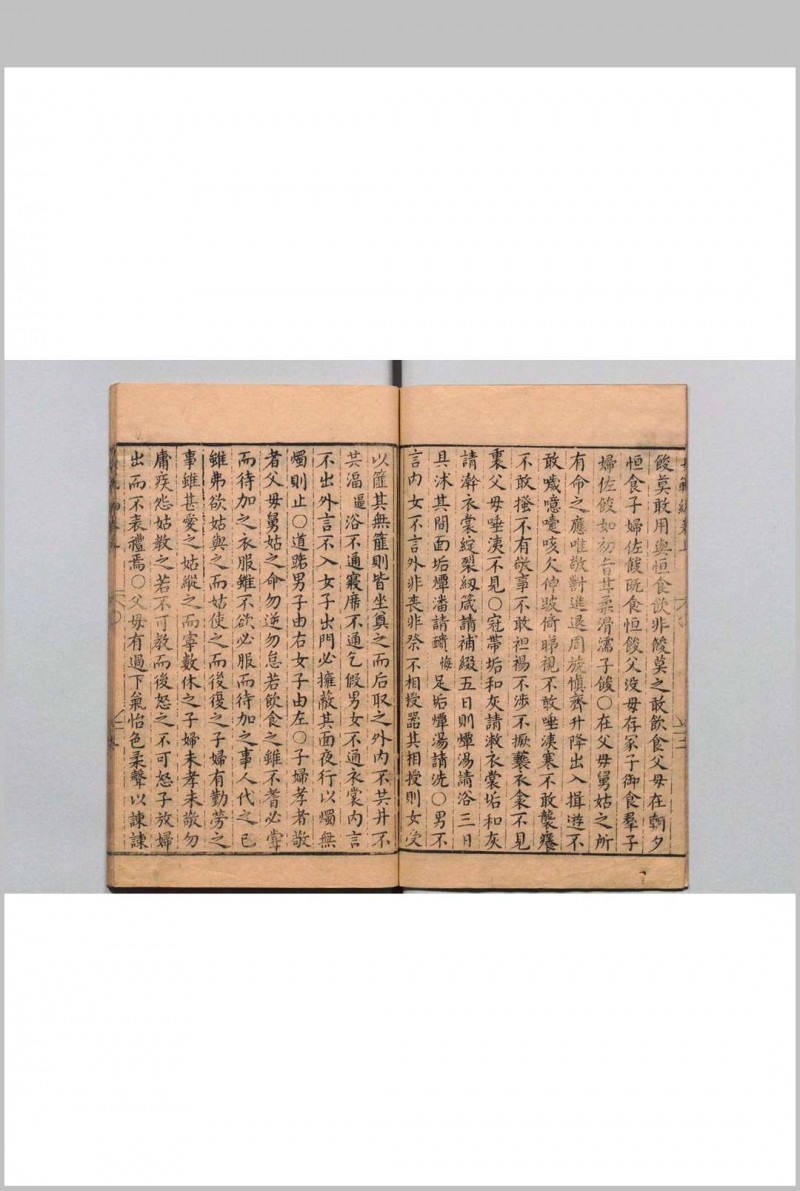 餕莫敢用與恒食飲非餕莫之敢飲食父母在朝夕
恒食子婦佐餕旣食恒餕父沒母存冢子御食羣子
婦佐餕如初旨甘柔滑濡子餕○在父母舅姑之所
有命之應唯敬對進退周旋愼齊升降出入揖遊不
敢噦噫嚔咳欠伸跛倚睇視不敢唾洟寒不敢襲癢
不敢搔不有敬事不敢袒裼不涉不撅褻衣衾不見
裏父母唾洟不見○冠帶垢和灰請漱衣裳垢和灰
請澣衣裳綻裂紉箴請補綴五日則燂湯請浴三日
具沐其間面垢燂潘請靧足垢燂湯請洗○男不
言內女不言外非喪非祭不相授器其相授則女受
以篚其無篚則皆坐奠之而后取之外內不共井不
共湢浴不通寢席不通乞假男女不通衣裳內言
不出外言不入女子出門必擁蔽其面夜行以燭無
燭則止○道路男子由右女子由左○子婦孝者敬
者父母舅姑之命勿逆勿怠若飮食之雖不耆必嘗
而待加之衣服雖不欲必服而待加之事人代之己
雖弗欲姑與之而姑使之而後復之子婦有勤勞之
事雖甚愛之姑縱之而寧數休之子婦未孝未敬勿
庸疾怨姑教之若不可教而後怒之不可怒子放婦
出而不表禮焉○父母有過下氣怡色柔聲以諫諫